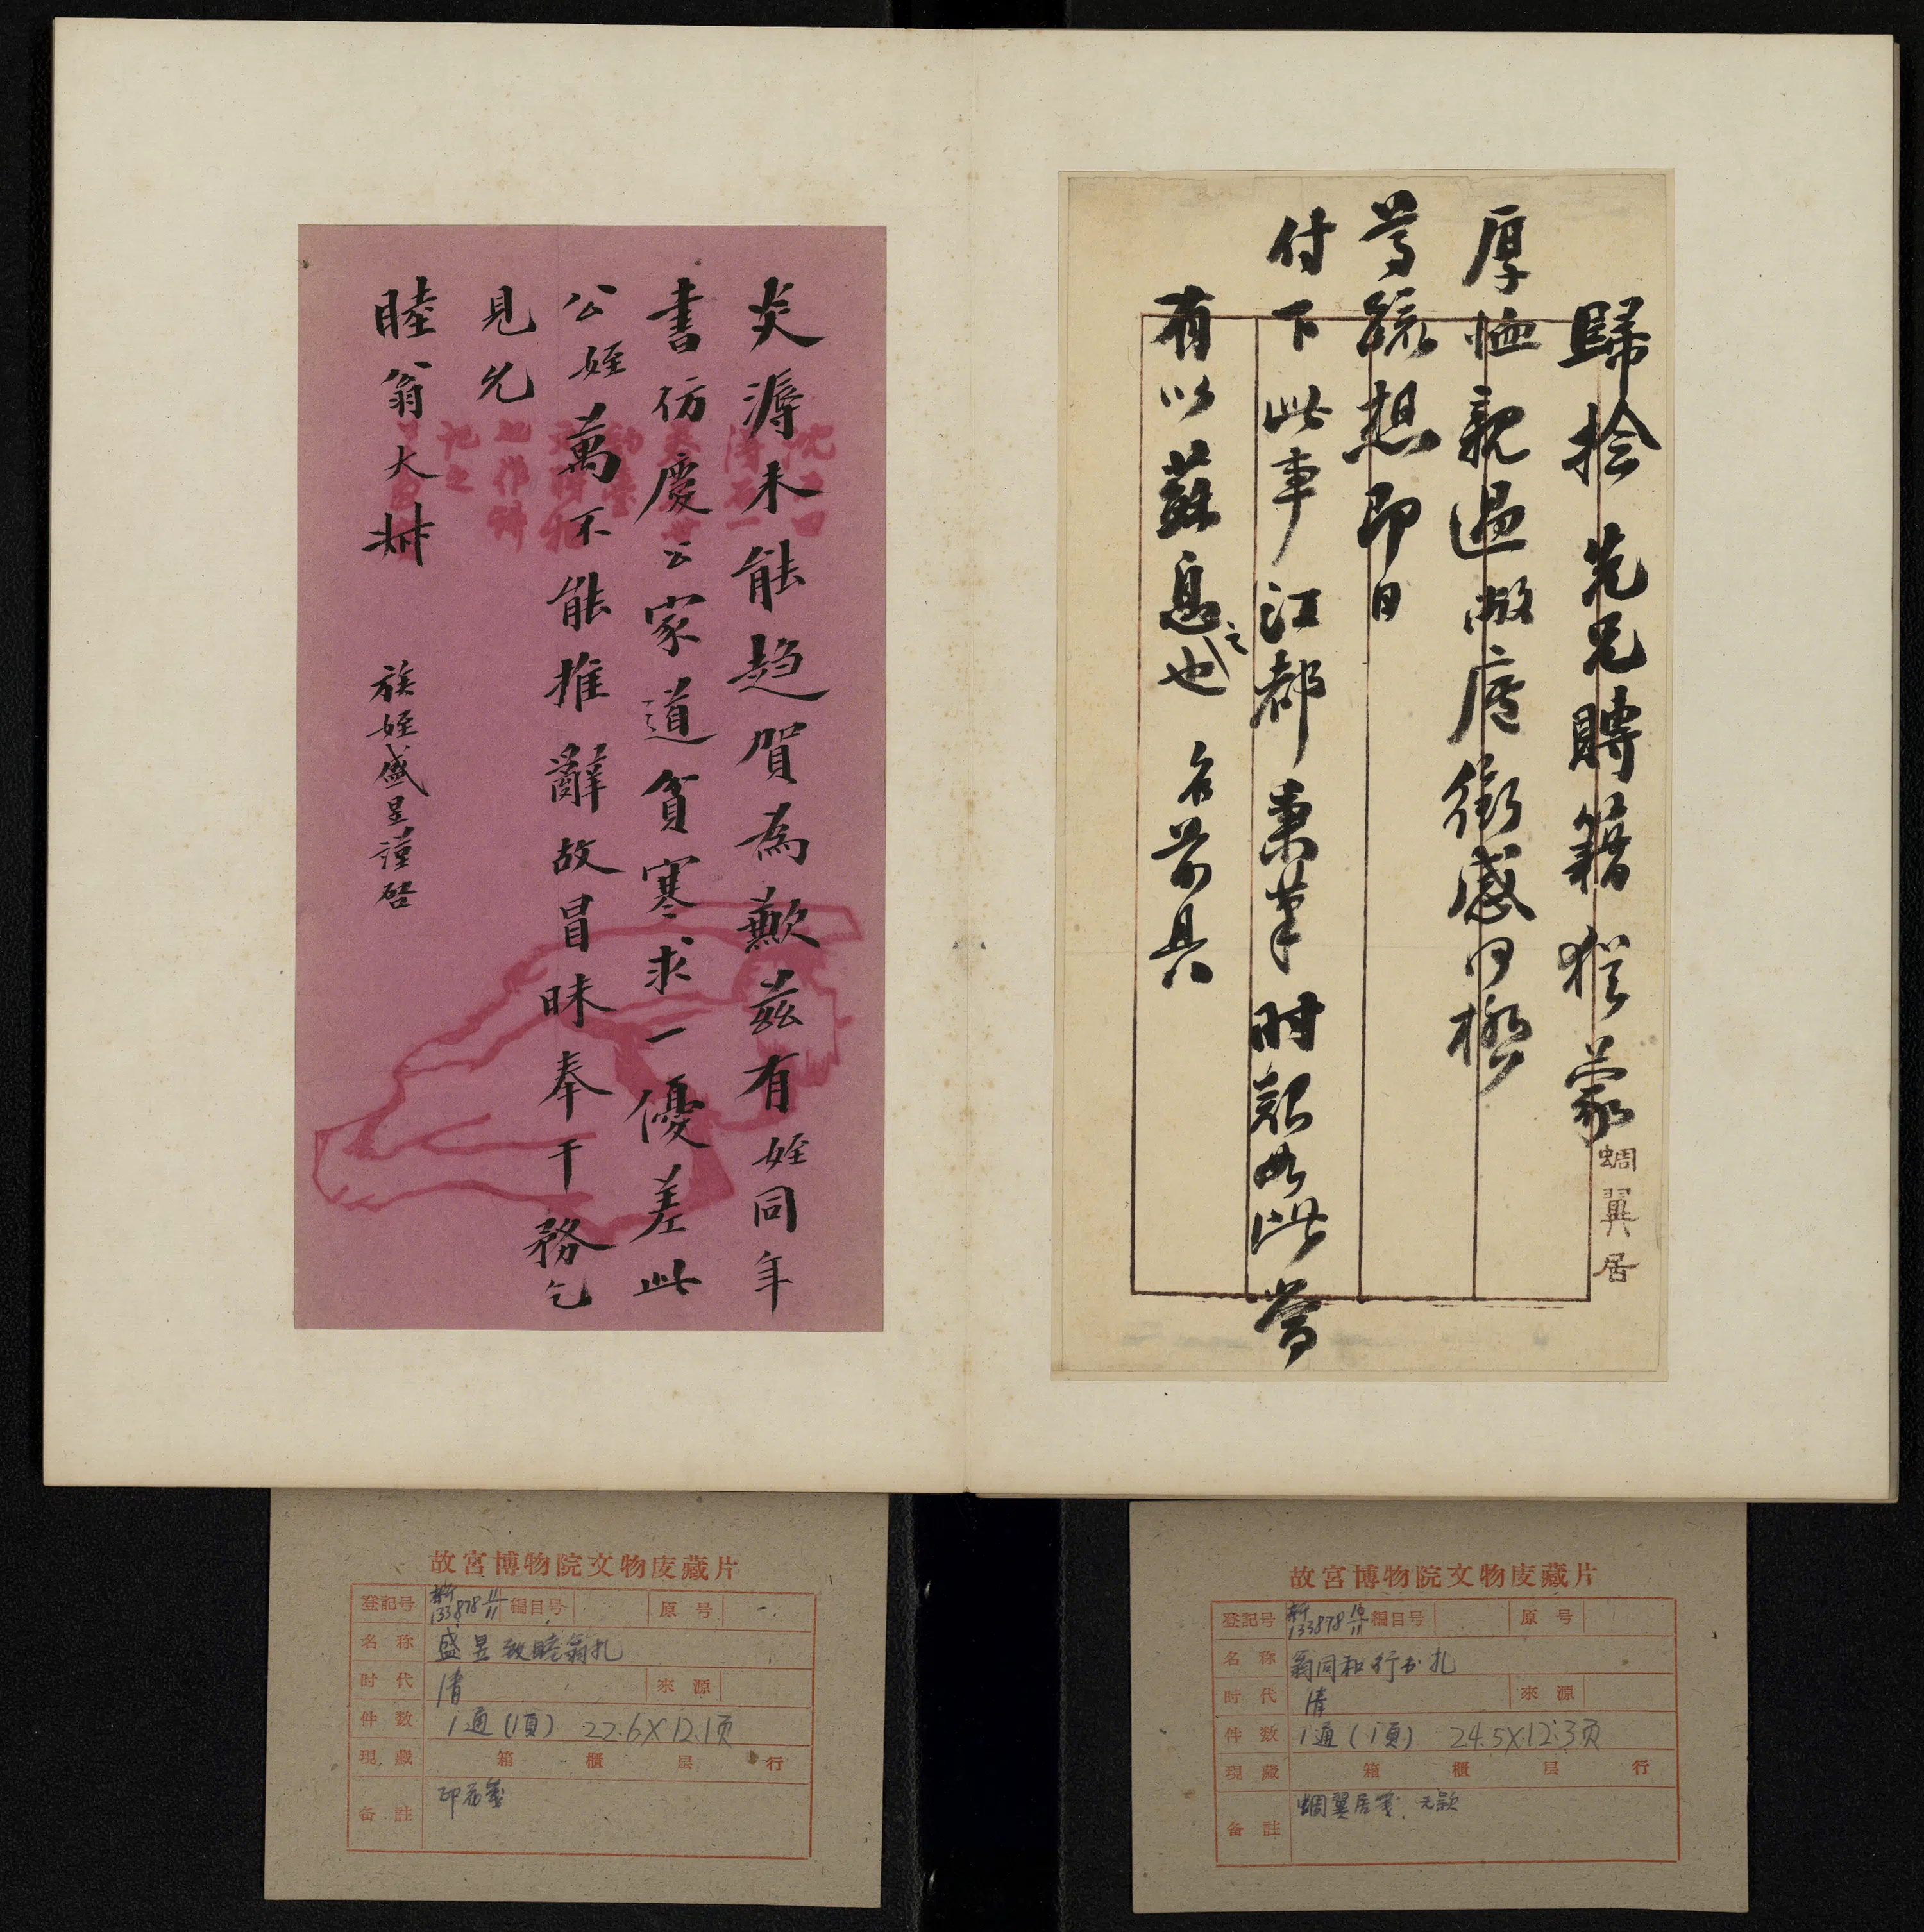 歸捡 先兄聘籍猥蒙
厚恤親過敝廬銜感何極
蜩翼居
尊疏想即日
付下此事江都秉筆時親如此嘗
有以蘇息之也 名前具
炎溽未能趨賀為歉茲有姪同年
書仿慶云家道貧寒求一優差此
公姪萬不能推辭故冒昧奉干務乞
見允
睦翁大叔
族姪盛昱謹啓
故宮博物院文物庋藏片
登記号 新133878 11/11 編目号 原号 一
名称 盛昱致睦翁札
时代 清 來源
件数 1通(1頁) 22.6×12.1页
現藏 箱 櫃 层 行
备註 印花箋
故宮博物院文物庋藏片
登記号 新133878 10/11 編目号 原号
名称 翁同和行书札
时代 清 來源
件数 1通(1頁) 24.5×12.3页
現藏 箱 櫃 层 行
备註 蜩翼居箋、无款